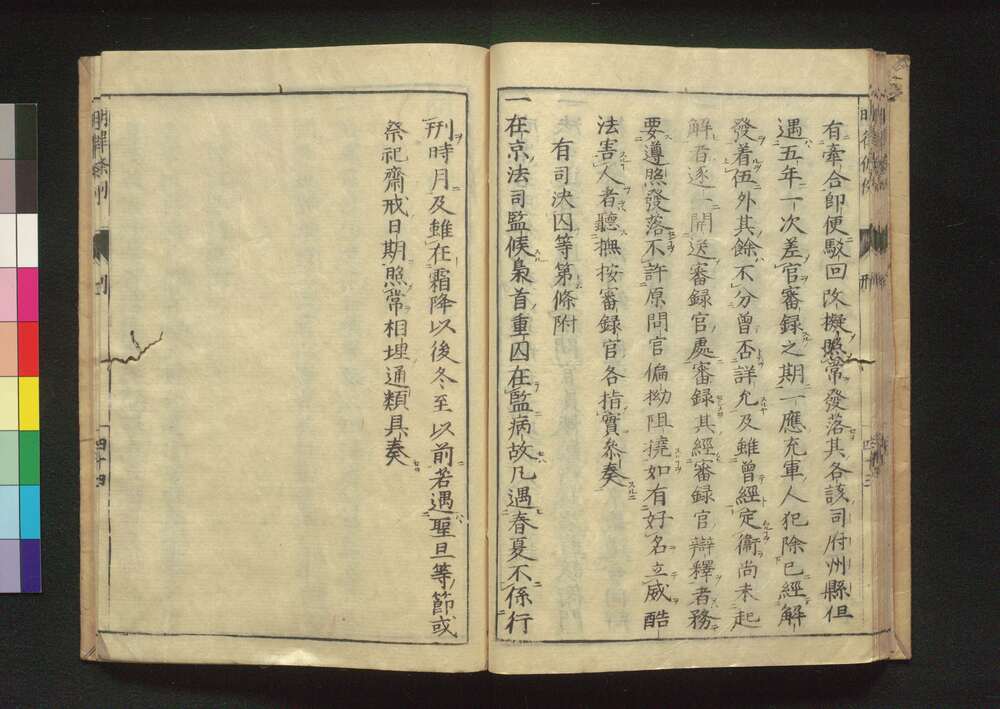 有牽合卽便駁回改擬照常發落其各該司府州縣但
遇五年一次差官審録之期一應充軍人犯除已經解
發着伍外其餘不分曾否詳允及雖曾經定衞尚未起
解者逐一開送審録官處審録其經審録官辯釋者務
要遵照發落不許原問官偏拗阻撓如有好名立威酷
法害人者聽撫按審録官各指實參奏
有司決囚等第條附
一在京法司監候梟首重囚在監病故凡遇春夏不係行
刑時月及雖在霜降以後冬至以前若遇聖旦等節或
祭祀齋戒日期照常相埋通類具奏
刑
四十四